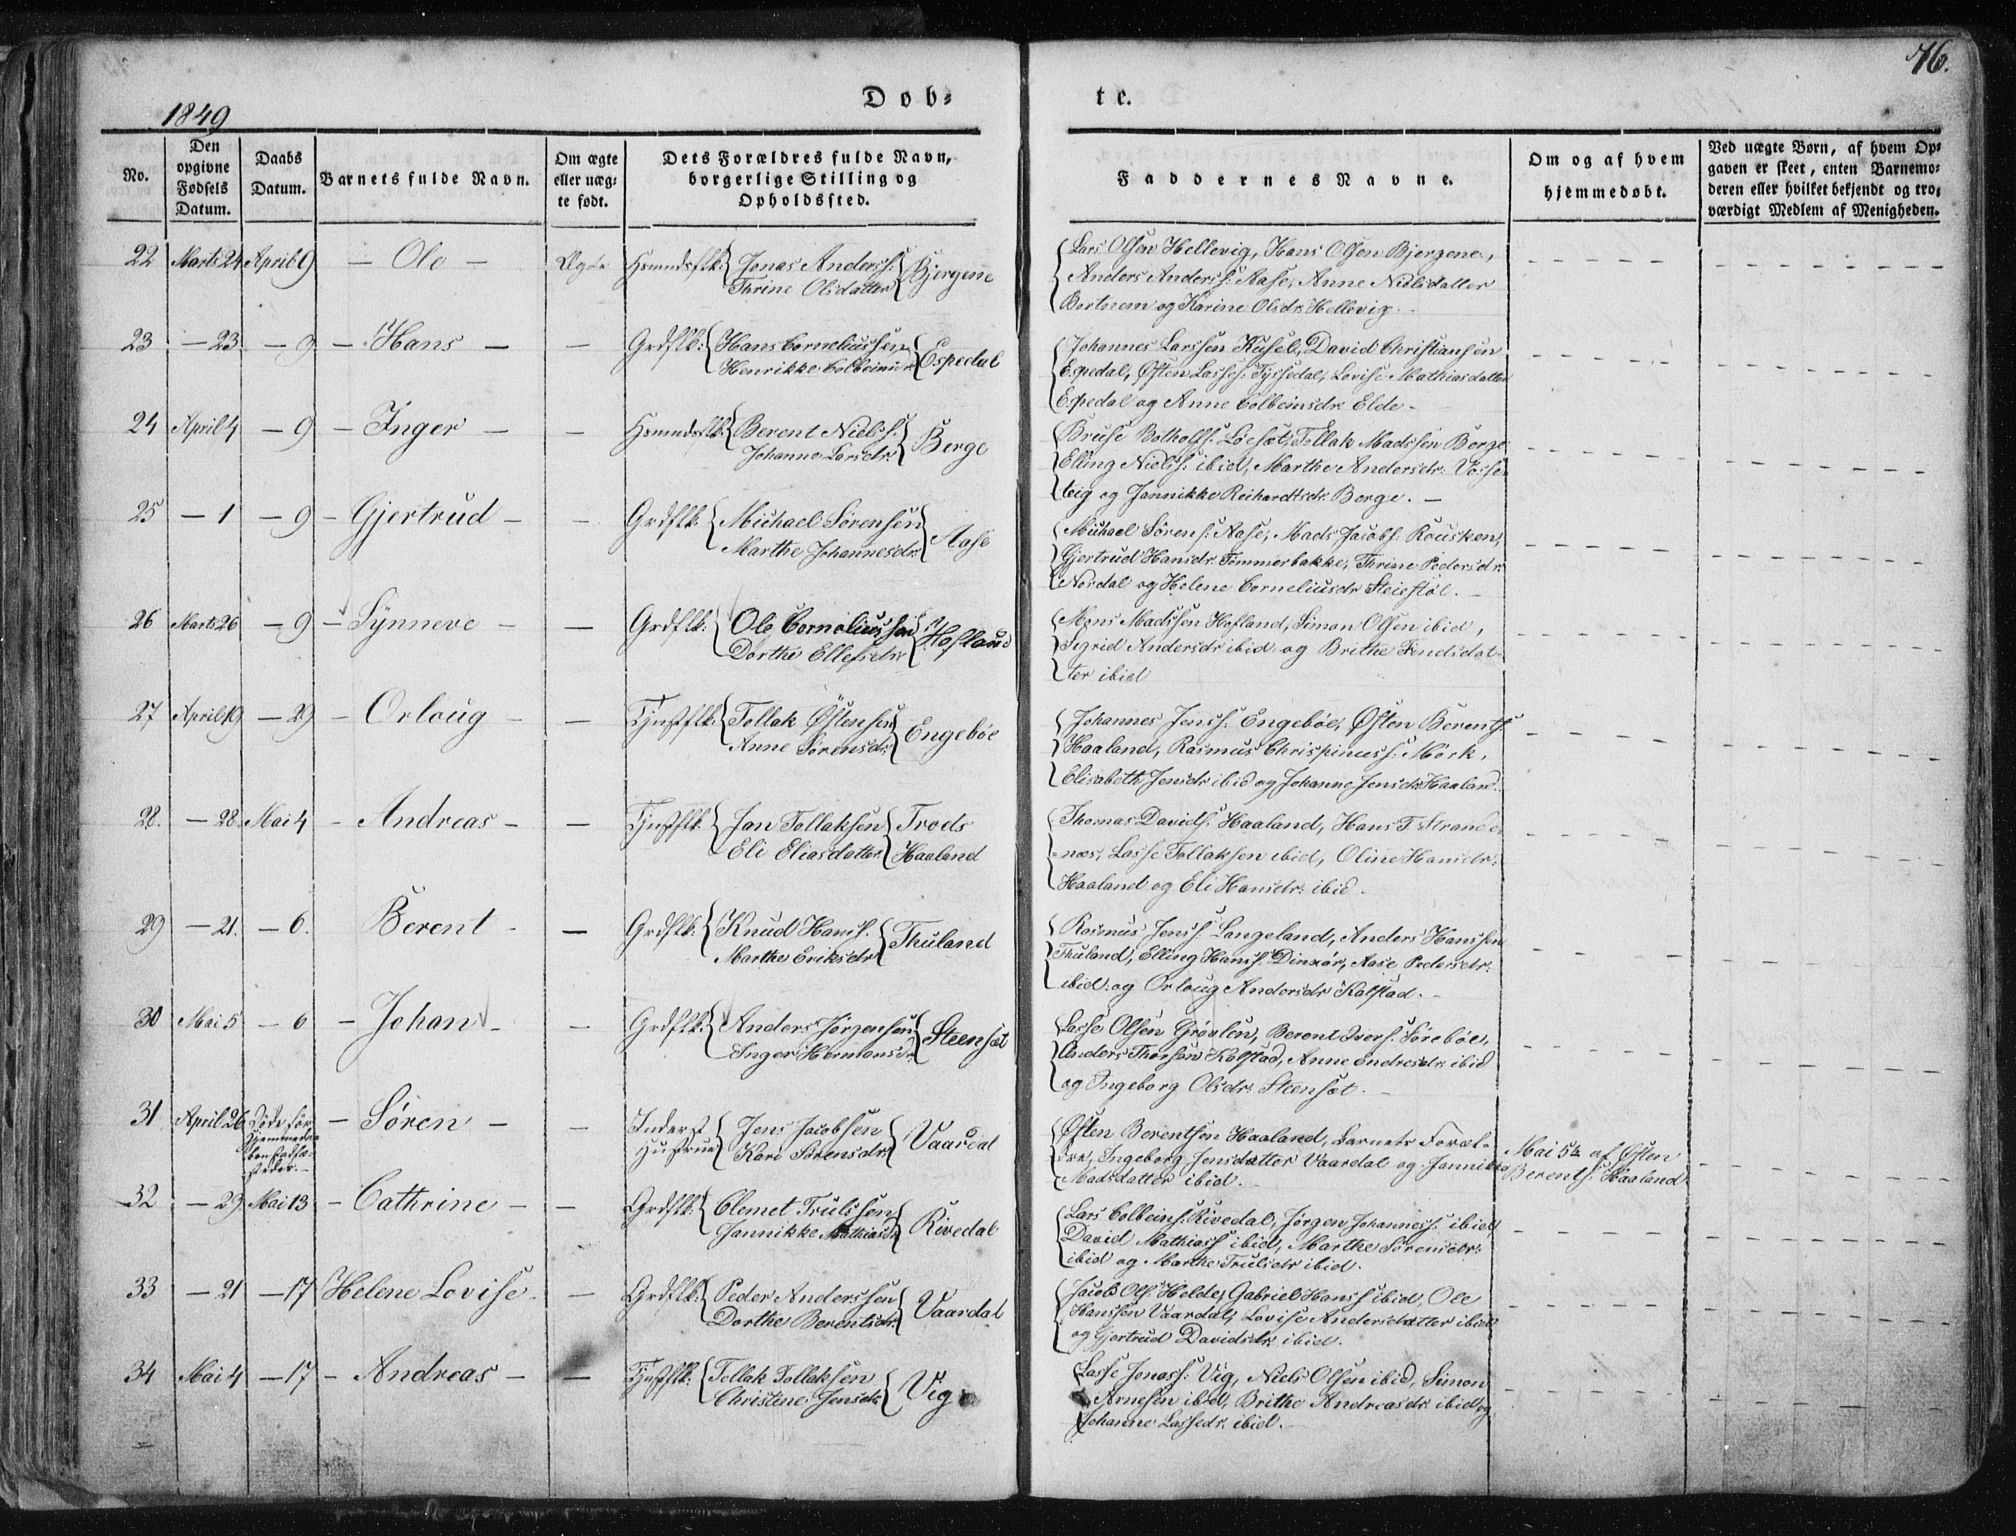 76.
1849
Døb-
te.
No.
Den opgivne Fødsels Datum.
Daabs Datum.
Barnets fulde Navn.
Om ægte eller uægte født.
Dets Forældres fulde Navn, borgerlige Stilling og Opholdssted.
Faddernes Navne.
Om og af hvem hjemmedøbt.
Ved uægte Børn, af hvem Opgaven er skeet, enten Barnemoderen eller hvilket bekjendt og troværdigt Medlem af Menigheden.
22 Marts 24 April 9 - Ole - Ægte Hsmndsflk: Jonas Anderss: Thrine Olsdatter Bjergene
Lars Olsen Hellevig, Hans Olsen Bjergene,
Anders Anderss: Aase, Anne Nielsdatter
Bortnem og Karine Olsdr: Hellevig. -
23 - 23 - 9 - Hans - - Grdflk: Hans Corneliussen Henrikke Colbeinsdr: Espedal
Johannes Larssen Kusel, David Christiansen
Espedal, Østen Lasses: Tyssedal, Lovise Mathiasdatter
Espedal og Anne Colbeinsdr: Elde -
24 April 4 - 9 - Inger - - Hsmndsflk: Berent Niels: Johanne Larsdr: Berge
Bruse Botholfs: Løeset, Tollak Madssen Berge
Elling Niels: ibid, Marthe Andersdr: Vasse-
teig og Jannikke Reihardtsdr: Berge. -
25 - 1 - 9 - Gjertrud - - Grdflk: Michael Sørensen Marthe Johannesdr: Aase
Michael Sørens: Aase, Mads Jacobs: Rousken,
Gjertrud Hansdr: Tømmerbakke, Thrine Pedersdr:
Nordal og Helene Corneliusdr: Steiestøl. -
26 Marts 26 - 9 - Synneve - - Grdflk: Ole Corneliussen Dorthe Ellefsdr: Hofland
Mons Madssen Hofland, Simon Olsen ibid,
Sigrid Andersdr: ibid og Brithe Findsdat-
ter ibid
27 April 19 - 29 - Orloug - - Tjnstflk: Tollak Østensen Anne Sørensdr: Engebøe
Johannes Jenss: Engebøe, Østen Berents:
Haaland, Rasmus Chrispinuss: Mörk,
Elisabeth Jensdr: ibid og Johanne Jensdr: Haaland.
28. - 28. Mai 4 - Andreas - - Tjnstflk: Jan Tollaksen Eli Eliasdatter Trods Haaland
Thomas Davids: Haaland, Hans T Strande-
næs, Lasse Tollaksen ibid, Oline Hansdr:
Haaland og Eli Hansdr: ibid.
29 - 21. - 6. Berent - - Grdflk: Knud Hanss: Marthe Eriksdr: Thuland
Rasmus Jenss: Langeland, Anders Hanssen
Thuland, Elling Hanss: Dinxør, Aase Pedersdr:
ibid. og Orloug Andersdr: Kolstad. -
30 Mai 5 - 6 - Johan - - Grdflk: Anders Jørgensen Inger Hermansdr: Steensæt
Lasse Olsen Grønlen, Berent Ivers: Sørebøe,
Anders Thorsen Kolstad, Anne Endresdr: ibid
og Ingeborg Olsdr: Steensæt. -
31 April 26 Døde før - Søren - - Inderst Hustrue Jens Jacobsen Kari Sørensdr: Vaardal
Østen Berentsen Haaland, Barnets Foræl-
dre, Ingeborg Jensdatter Vaardal og Jannikke
Madsdatter ibid.
Mai 5te af Østen Berents: Haaland
32 - 29 Mai 13 - Cathrine - - Grdflk: Clemet Trulssen Jannikke Mathiasdr: Rivedal
Lars Colbeins: Rivedal, Jørgen Johanness: ibid,
David Mathiass: ibid, Marthe Sørensdr:
ibid og Marthe Trulsdr: ibid.
33 - 21 - 17 Helene Lovise - - Grdflk: Peder Anderssen Dorthe Berentsdr: Vaardal
Jacob Ols: Helde, Gabriel Hanss: ibid, Ole
Hanssen Vaardal, Lovise Andersdatter ibid
og Gjertrud Davidsdr: ibid.
34 Mai 4 - 17 - Andreas - - Tjnstflk: Tollak Tollaksen Christine Jensdr: Vig
Lasse Jonass: Vig, Niels Olsen ibid, Simon
Arnesen ibid, Brithe Andreasdr: ibid og
Johanne Lassedr: ibid. -